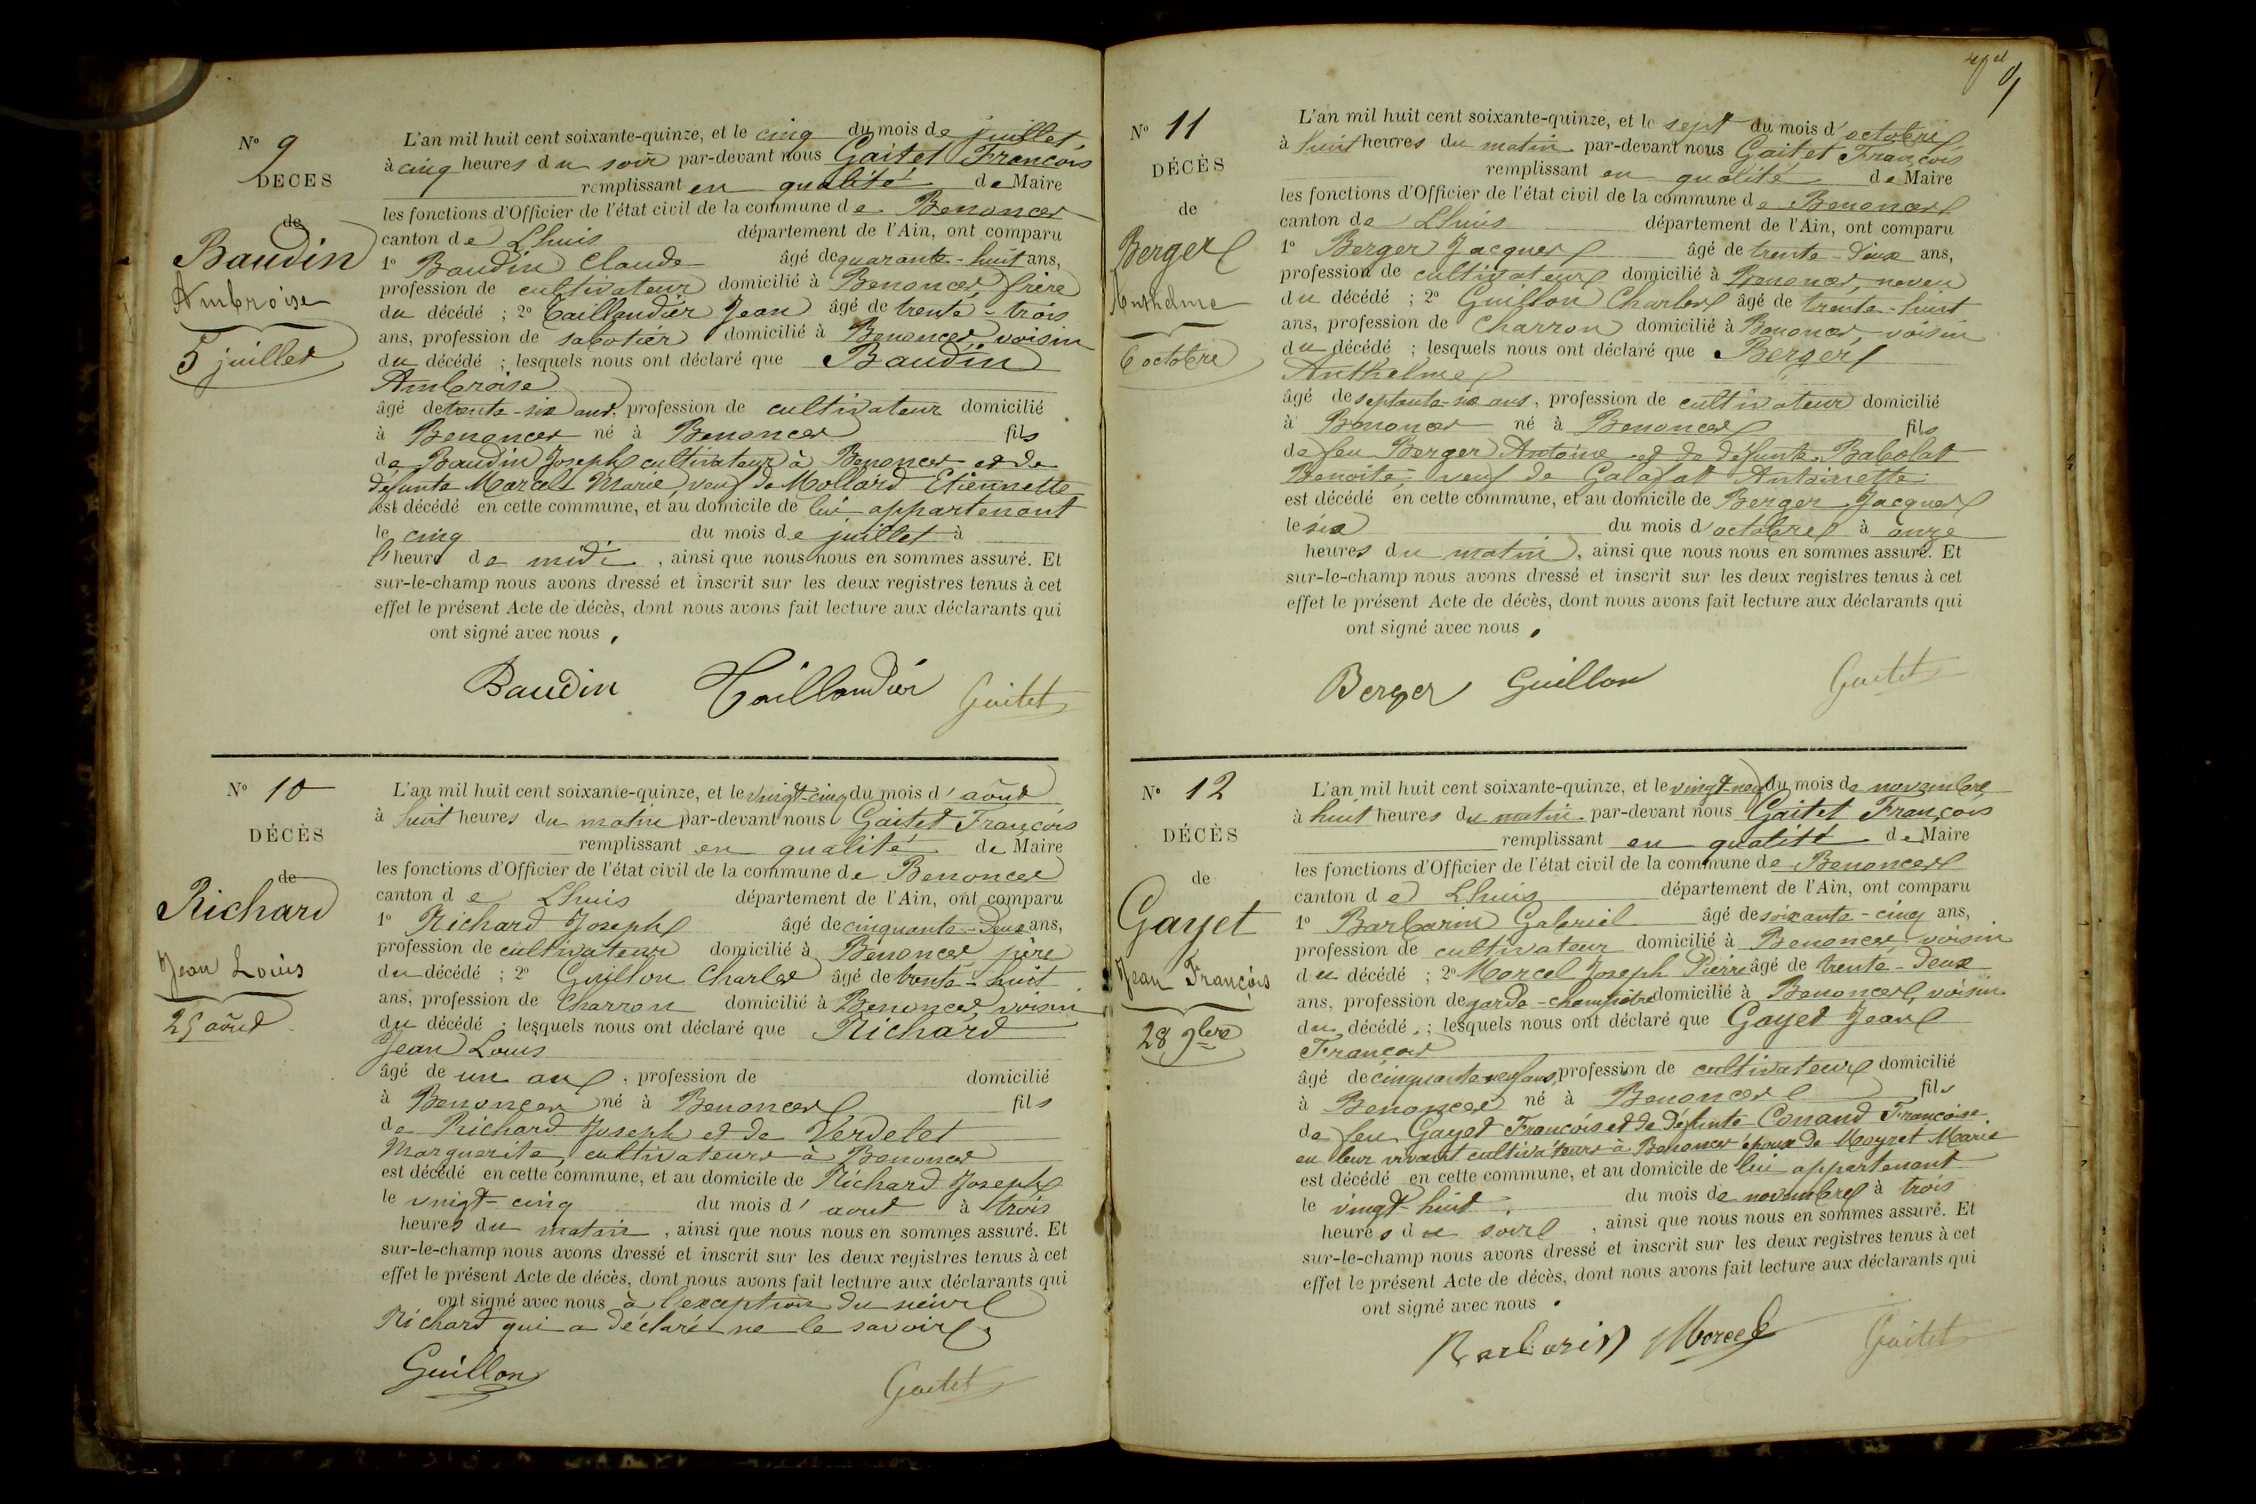 N° 9
DECES
de
Baudin
Ambroise
5 juillet
L'an mil huit cent soixante-quinze, et le cinq du mois de juillet,
à cinq heures du soir par-devant nous Gaitet François
remplissant en qualité de Maire
les fonctions d'Officier de l'état civil de la commune de Benonces
canton de Lhuis département de l'Ain, ont comparu
1° Baudin Claude âgé de quarante-huit ans,
profession de cultivateur domicilié à Benonces frère
du décédé ; 2° Taillandier Jean âgé de trente-trois
ans, profession de sabotier domicilié à Benonces voisin
du décédé ; lesquels nous ont déclaré que Baudin
Ambroise
âgé de trente-six ans, profession de cultivateur domicilié
à Benonces né à Benonces fils
de Baudin Joseph cultivateur à Benonces et de
défunte Marcel Marie, veuf de Mollard Etiennette
est décédé en cette commune, et au domicile de lui appartenant
le cinq du mois de juillet à
l'heure de midi, ainsi que nous nous en sommes assuré. Et
sur-le-champ nous avons dressé et inscrit sur les deux registres tenus à cet
effet le présent Acte de décès, dont nous avons fait lecture aux déclarants qui
ont signé avec nous.
Baudin Taillandier Gaitet
N° 10
DÉCÈS
de
Richard
Jean Louis
25 août
L'an mil huit cent soixante-quinze, et le vingt-cinq du mois d'août
à huit heures du matin par-devant nous Gaitet François
remplissant en qualité de Maire
les fonctions d'Officier de l'état civil de la commune de Benonces
canton de Lhuis département de l'Ain, ont comparu
1° Richard Joseph âgé de cinquante-deux ans,
profession de cultivateur domicilié à Benonces père
du décédé ; 2° Guillon Charles âgé de trente-huit
ans, profession de Charron domicilié à Benonces voisin
du décédé ; lesquels nous ont déclaré que Richard
Jean Louis
âgé de un an, profession de domicilié
à Benonces né à Benonces fils
de Richard Joseph et de Verdelet
Marguerite, cultivateurs à Benonces
est décédé en cette commune, et au domicile de Richard Joseph
le vingt-cinq du mois d'aout à trois
heures du matin, ainsi que nous nous en sommes assuré. Et
sur-le-champ nous avons dressé et inscrit sur les deux registres tenus à cet
effet le présent Acte de décès, dont nous avons fait lecture aux déclarants qui
ont signé avec nous à l'exception du sieur
Richard qui a déclaré ne le savoir
Guillon Gaitet
N° 11
DÉCÈS
de
Berger
Anthelme
6 octobre
L'an mil huit cent soixante-quinze, et le sept du mois d'octobre
à huit heures du matin par-devant nous Gaitet François
remplissant en qualité de Maire
les fonctions d'Officier de l'état civil de la commune de Benonces
canton de Lhuis département de l'Ain, ont comparu
1° Berger Jacques âgé de trente-deux ans,
profession de cultivateur domicilié à Benonces, neveu
du décédé ; 2° Guillon Charles âgé de trente-huit
ans, profession de Charron domicilié à Benonces voisin
du décédé ; lesquels nous ont déclaré que Berger
Anthelme
âgé de septante-six ans, profession de cultivateur domicilié
à Benonces né à Benonces fils
de feu Berger Antoine et de défunte Babolat
Benoite veuf de Galafat Antoinette
est décédé en cette commune, et au domicile de Berger Jacques
le six du mois d'octobre à onze
heures du matin, ainsi que nous nous en sommes assuré. Et
sur-le-champ nous avons dressé et inscrit sur les deux registres tenus à cet
effet le présent Acte de décès, dont nous avons fait lecture aux déclarants qui
ont signé avec nous.
Berger Guillon Gaitet
N° 12
DÉCÈS
de
Gayet
Jean François
28 9bre
L'an mil huit cent soixante-quinze, et le vingt-neuf du mois de novembre
à huit heures du matin par-devant nous Gaitet François
remplissant en qualité de Maire
les fonctions d'Officier de l'état civil de la commune de Benonces
canton de Lhuis département de l'Ain, ont comparu
1° Barbarin Gabriel âgé de soixante-cinq ans,
profession de cultivateur domicilié à Benonces voisin
du décédé ; 2° Marcel Joseph Pierre âgé de trente-deux
ans, profession de garde-champêtre domicilié à Benonces, voisin
du décédé ; lesquels nous ont déclaré que Gayet Jean
François
âgé de cinquante neuf ans, profession de cultivateur domicilié
à Benonces né à Benonces fils
de feu Gayet François et de défunte Conand Françoise
en leur vivant cultivateurs à Benonces époux de Moyret Marie
est décédé en cette commune, et au domicile de lui appartenant
le vingt-huit du mois de novembre à trois
heures du soir, ainsi que nous nous en sommes assuré. Et
sur-le-champ nous avons dressé et inscrit sur les deux registres tenus à cet
effet le présent Acte de décès, dont nous avons fait lecture aux déclarants qui
ont signé avec nous.
Barbarin Marcel Gaitet